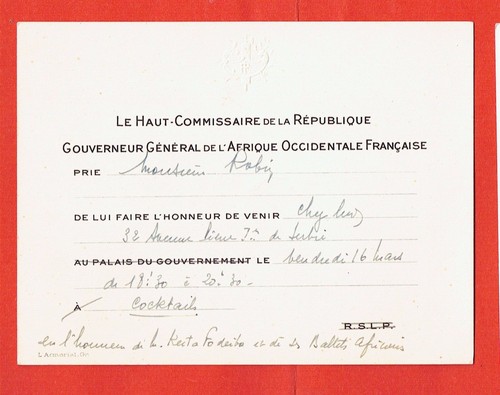 LE HAUT-COMMISSAIRE DE LA RÉPUBLIQUE
GOUVERNEUR GÉNÉRAL DE L'AFRIQUE OCCIDENTALE FRANÇAISE
PRIE Monsieur Robin
DE LUI FAIRE L'HONNEUR DE VENIR chez lui
32 Avenue Pierre 1er de Serbie
AU PALAIS DU GOUVERNEMENT LE Vendredi 16 mars
de 18h.30 à 20h.30 -
À Cocktails
R.S.L.P.
en l'honneur de M. Keita Fodeiba et de ses Ballets Africains
L'Armorial, Dr.